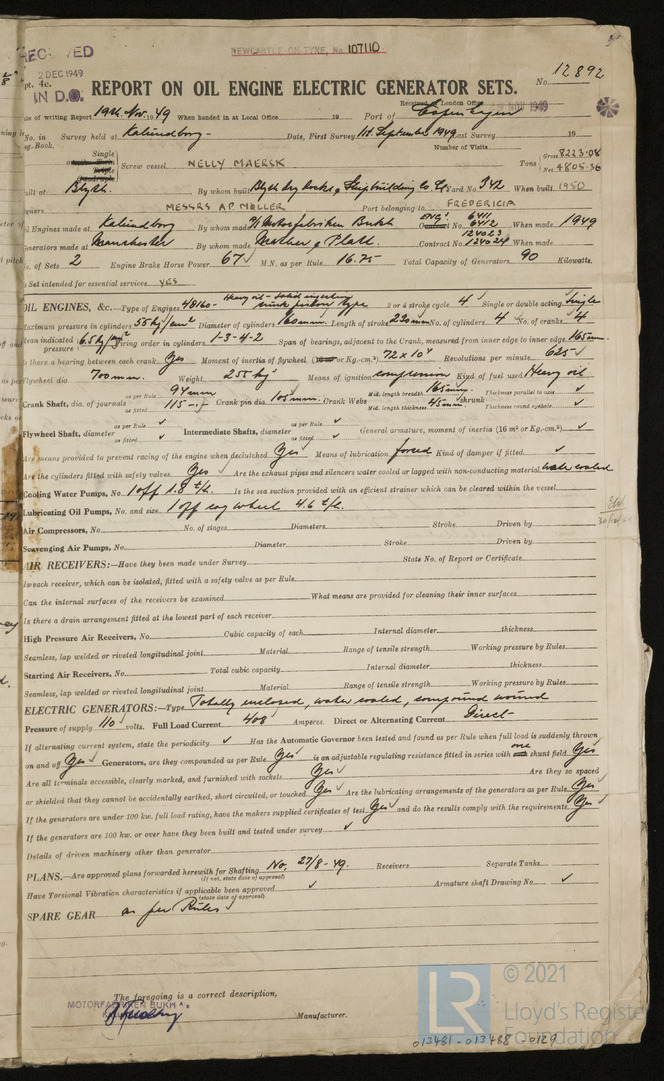 NEWCASTLE-ON-TYNE, No 107110
RECEIVED
2 DEC 1949
Rpt. 4c.
IN D.O.
REPORT ON OIL ENGINE ELECTRIC GENERATOR SETS.
No. 12892
Received at London Office NOV 1949
Date of writing Report 19th Nov. 1949 When handed in at Local Office 19 Port of Copenhagen
No. in Survey held at Kalundborg - Date, First Survey 1st September 1949 Last Survey 19
Reg. Book. Number of Visits
Single
Screw vessel NELLY MAERSK Tons Gross 8223.08
Net 4805.36
Built at Blyth. By whom built Blyth Dry Docks & Shipbuilding Co Ld Yard No. 342 When built 1950
Owners MESSRS A.P. MØLLER Port belonging to FREDERICIA
Oil Engines made at Kalundborg By whom made A/S Motorfabriken Bukh Eng. No. 6411 6412 When made 1949
Generators made at Manchester By whom made Mather & Platt. Contract No. 124023 124024 When made
No. of Sets 2 Engine Brake Horse Power 67 M.N. as per Rule 16.75 Total Capacity of Generators 90 Kilowatts.
Is Set intended for essential services YES
OIL ENGINES, &c.—Type of Engines 4B160 - Heavy oil - solid injection trunk piston type 2 or 4 stroke cycle 4 Single or double acting Single
Maximum pressure in cylinders 55 kg/cm² Diameter of cylinders 160 mm. Length of stroke 230 mm No. of cylinders 4 No. of cranks 4
Mean indicated pressure 6.5 kg/cm² Firing order in cylinders 1-3-4-2 Span of bearings, adjacent to the Crank, measured from inner edge to inner edge 165 mm.
Is there a bearing between each crank Yes Moment of inertia of flywheel (or Kg.-cm.²) 72 x 10⁴ Revolutions per minute 625
Flywheel dia. 700 mm. Weight 255 kg Means of ignition compression Kind of fuel used Heavy oil
Crank Shaft, dia. of journals as per Rule 94 mm as fitted 115 - Crank pin dia. 105 mm. Crank Webs Mid. length breadth 165 mm. Mid. length thickness 45 mm shrunk Thickness parallel to axis ✓ Thickness round eyehole ✓
Flywheel Shaft, diameter as per Rule ✓ as fitted ✓ Intermediate Shafts, diameter as per Rule ✓ as fitted ✓ General armature, moment of inertia (16 m² or Kg.-cm.²) ✓
Are means provided to prevent racing of the engine when declutched Yes Means of lubrication forced Kind of damper if fitted ✓
Are the cylinders fitted with safety valves Yes Are the exhaust pipes and silencers water cooled or lagged with non-conducting material water cooled
Cooling Water Pumps, No. 1 off 1.8 t/h. Is the sea suction provided with an efficient strainer which can be cleared within the vessel
Lubricating Oil Pumps, No. and size. 1 off cog wheel 4.6 t/h.
Air Compressors, No. No. of stages Diameters Stroke Driven by
Scavenging Air Pumps, No. Diameter Stroke Driven by
AIR RECEIVERS:—Have they been made under Survey State No. of Report or Certificate
Is each receiver, which can be isolated, fitted with a safety valve as per Rule
Can the internal surfaces of the receivers be examined What means are provided for cleaning their inner surfaces
Is there a drain arrangement fitted at the lowest part of each receiver
High Pressure Air Receivers, No. Cubic capacity of each Internal diameter thickness
Seamless, lap welded or riveted longitudinal joint Material Range of tensile strength Working pressure by Rules
Starting Air Receivers, No. Total cubic capacity Internal diameter thickness
Seamless, lap welded or riveted longitudinal joint Material Range of tensile strength Working pressure by Rules
ELECTRIC GENERATORS:—Type Totally enclosed, water cooled, compound wound
Pressure of supply 110 volts. Full Load Current 408 Amperes. Direct or Alternating Current Direct
If alternating current system, state the periodicity ✓ Has the Automatic Governor been tested and found as per Rule when full load is suddenly thrown
on and off Yes Generators, are they compounded as per Rule Yes is an adjustable regulating resistance fitted in series with one shunt field Yes
Are all terminals accessible, clearly marked, and furnished with sockets Yes Are they so spaced
or shielded that they cannot be accidentally earthed, short circuited, or touched Yes Are the lubricating arrangements of the generators as per Rule Yes
If the generators are under 100 kw. full load rating, have the makers supplied certificates of test Yes and do the results comply with the requirements Yes
If the generators are 100 kw. or over have they been built and tested under survey ✓
Details of driven machinery other than generator
PLANS.—Are approved plans forwarded herewith for Shafting No. 27/8-49. Receivers Separate Tanks
(If not, state date of approval)
Have Torsional Vibration characteristics if applicable been approved ✓ Armature shaft Drawing No. ✓
(state date of approval)
SPARE GEAR as per Rules
The foregoing is a correct description,
MOTORFABRIKEN BUKH A/S
Manufacturer.
© 2021
LR
Lloyd's Register
Foundation
013481-013488-0129